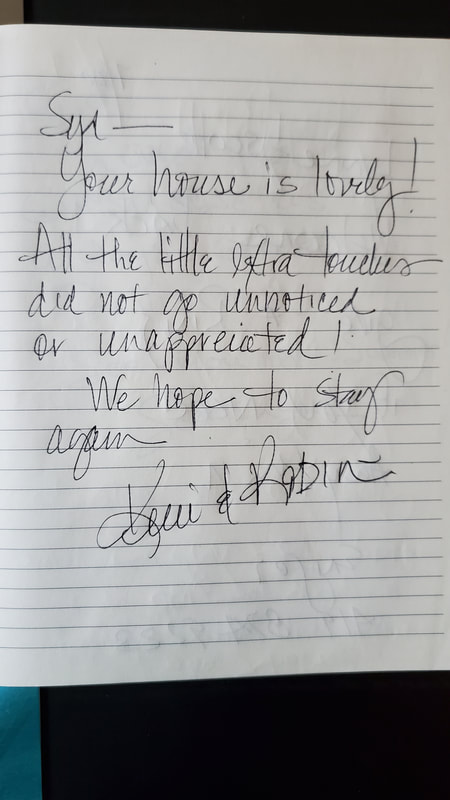 Your house is lovely!
All the little extra touches
did not go unnoticed
or unappreciated!
We hope to stay
again
& Robin